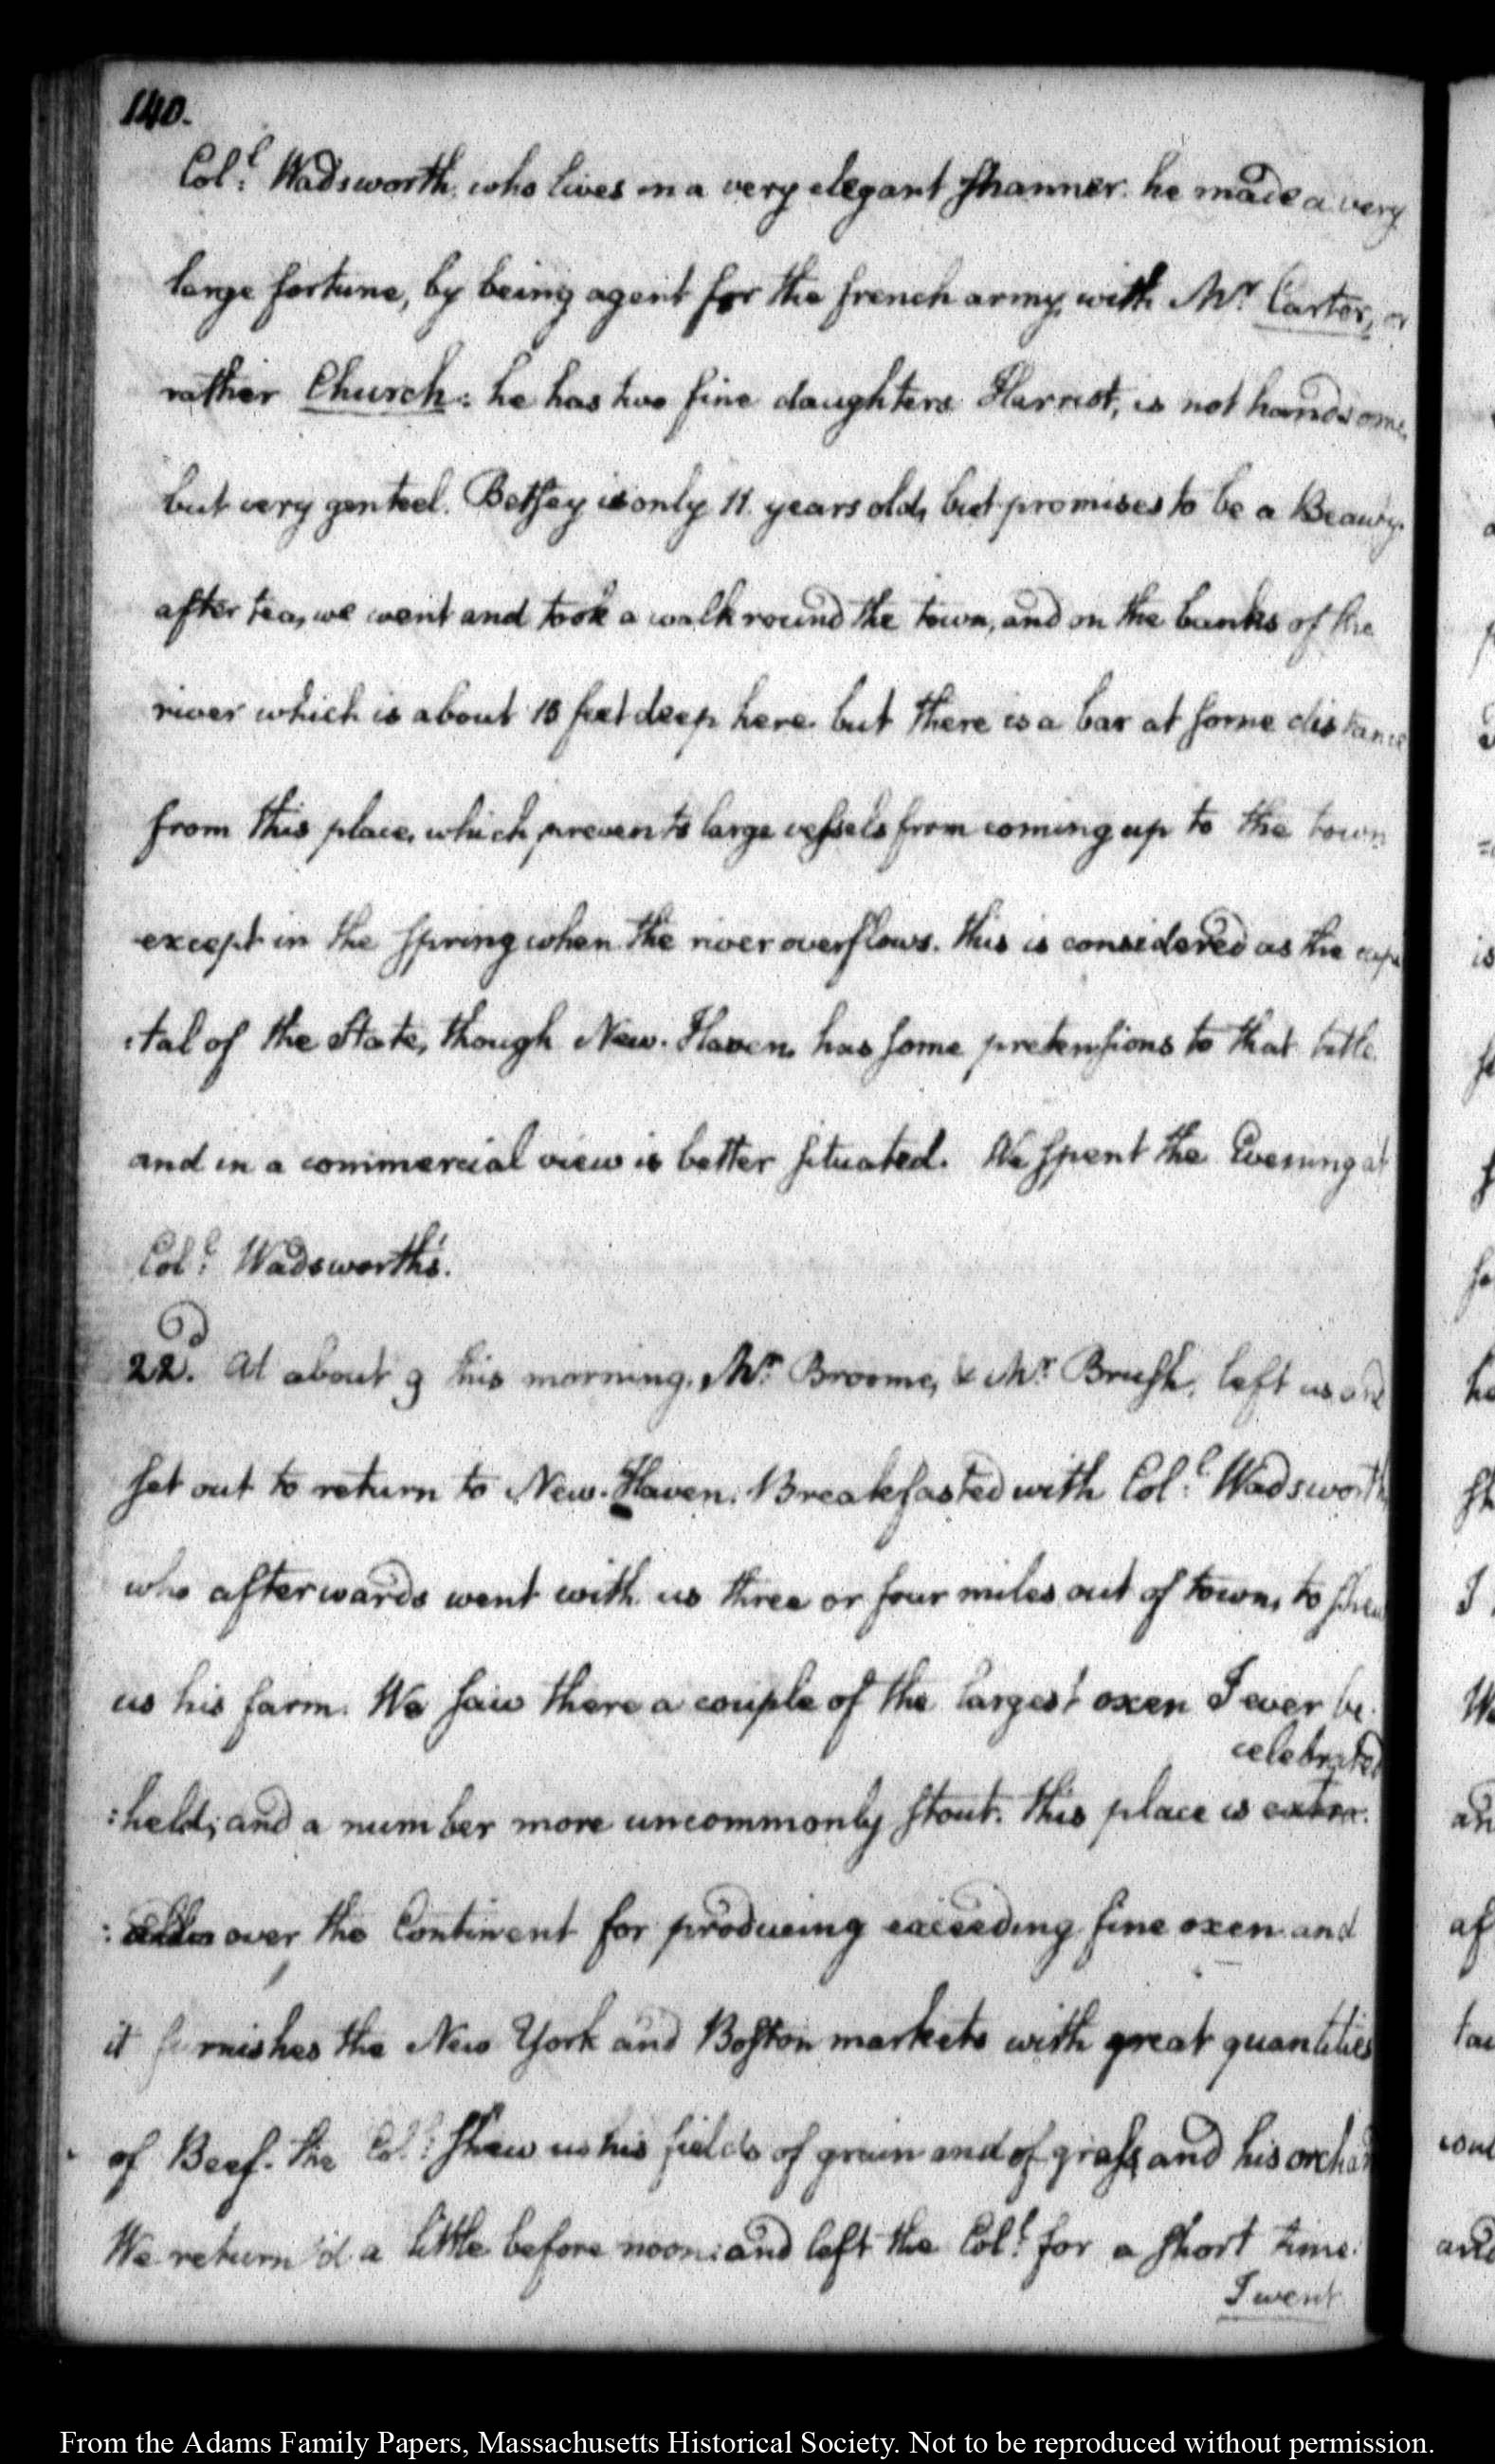 140.
Col.l Wadsworth, who lives in a very elegant manner. he made a very
large fortune, by being agent for the french army, with Mr. Carter, or
rather Church: he has two fine daughters Harriot, is not handsome,
but very genteel. Betsey is only 11. years old, but promises to be a Beauty.
after tea, we went and took a walk round the town, and on the banks of the
river which is about 18 feet deep here. but there is a bar at some distance
from this place, which prevents large vessels from coming up to the town
except in the spring when the river overflows. this is considered as the capi
:tal of the State, though New-Haven has some pretensions to that title.
and in a commercial view is better situated. We spent the Evening at
Col.l Wadsworth's.
22d. At about 9 this morning, Mr. Broome, & Mr. Brush, left us and
set out to return to New-Haven. Breakfasted with Col.l Wadsworth
who afterwards went with us three or four miles out of town, to shew
us his farm. We saw there a couple of the largest oxen I ever be:
celebrated
:held, and a number more uncommonly stout. this place is
over the Continent for producing exceeding fine oxen and
it furnishes the New York and Boston markets with great quantities
of Beef. the Col.l shew us his fields of grain and of grass, and his orchard
We return'd a little before noon: and left the Col.l for a short time.
I went
From the Adams Family Papers, Massachusetts Historical Society. Not to be reproduced without permission.